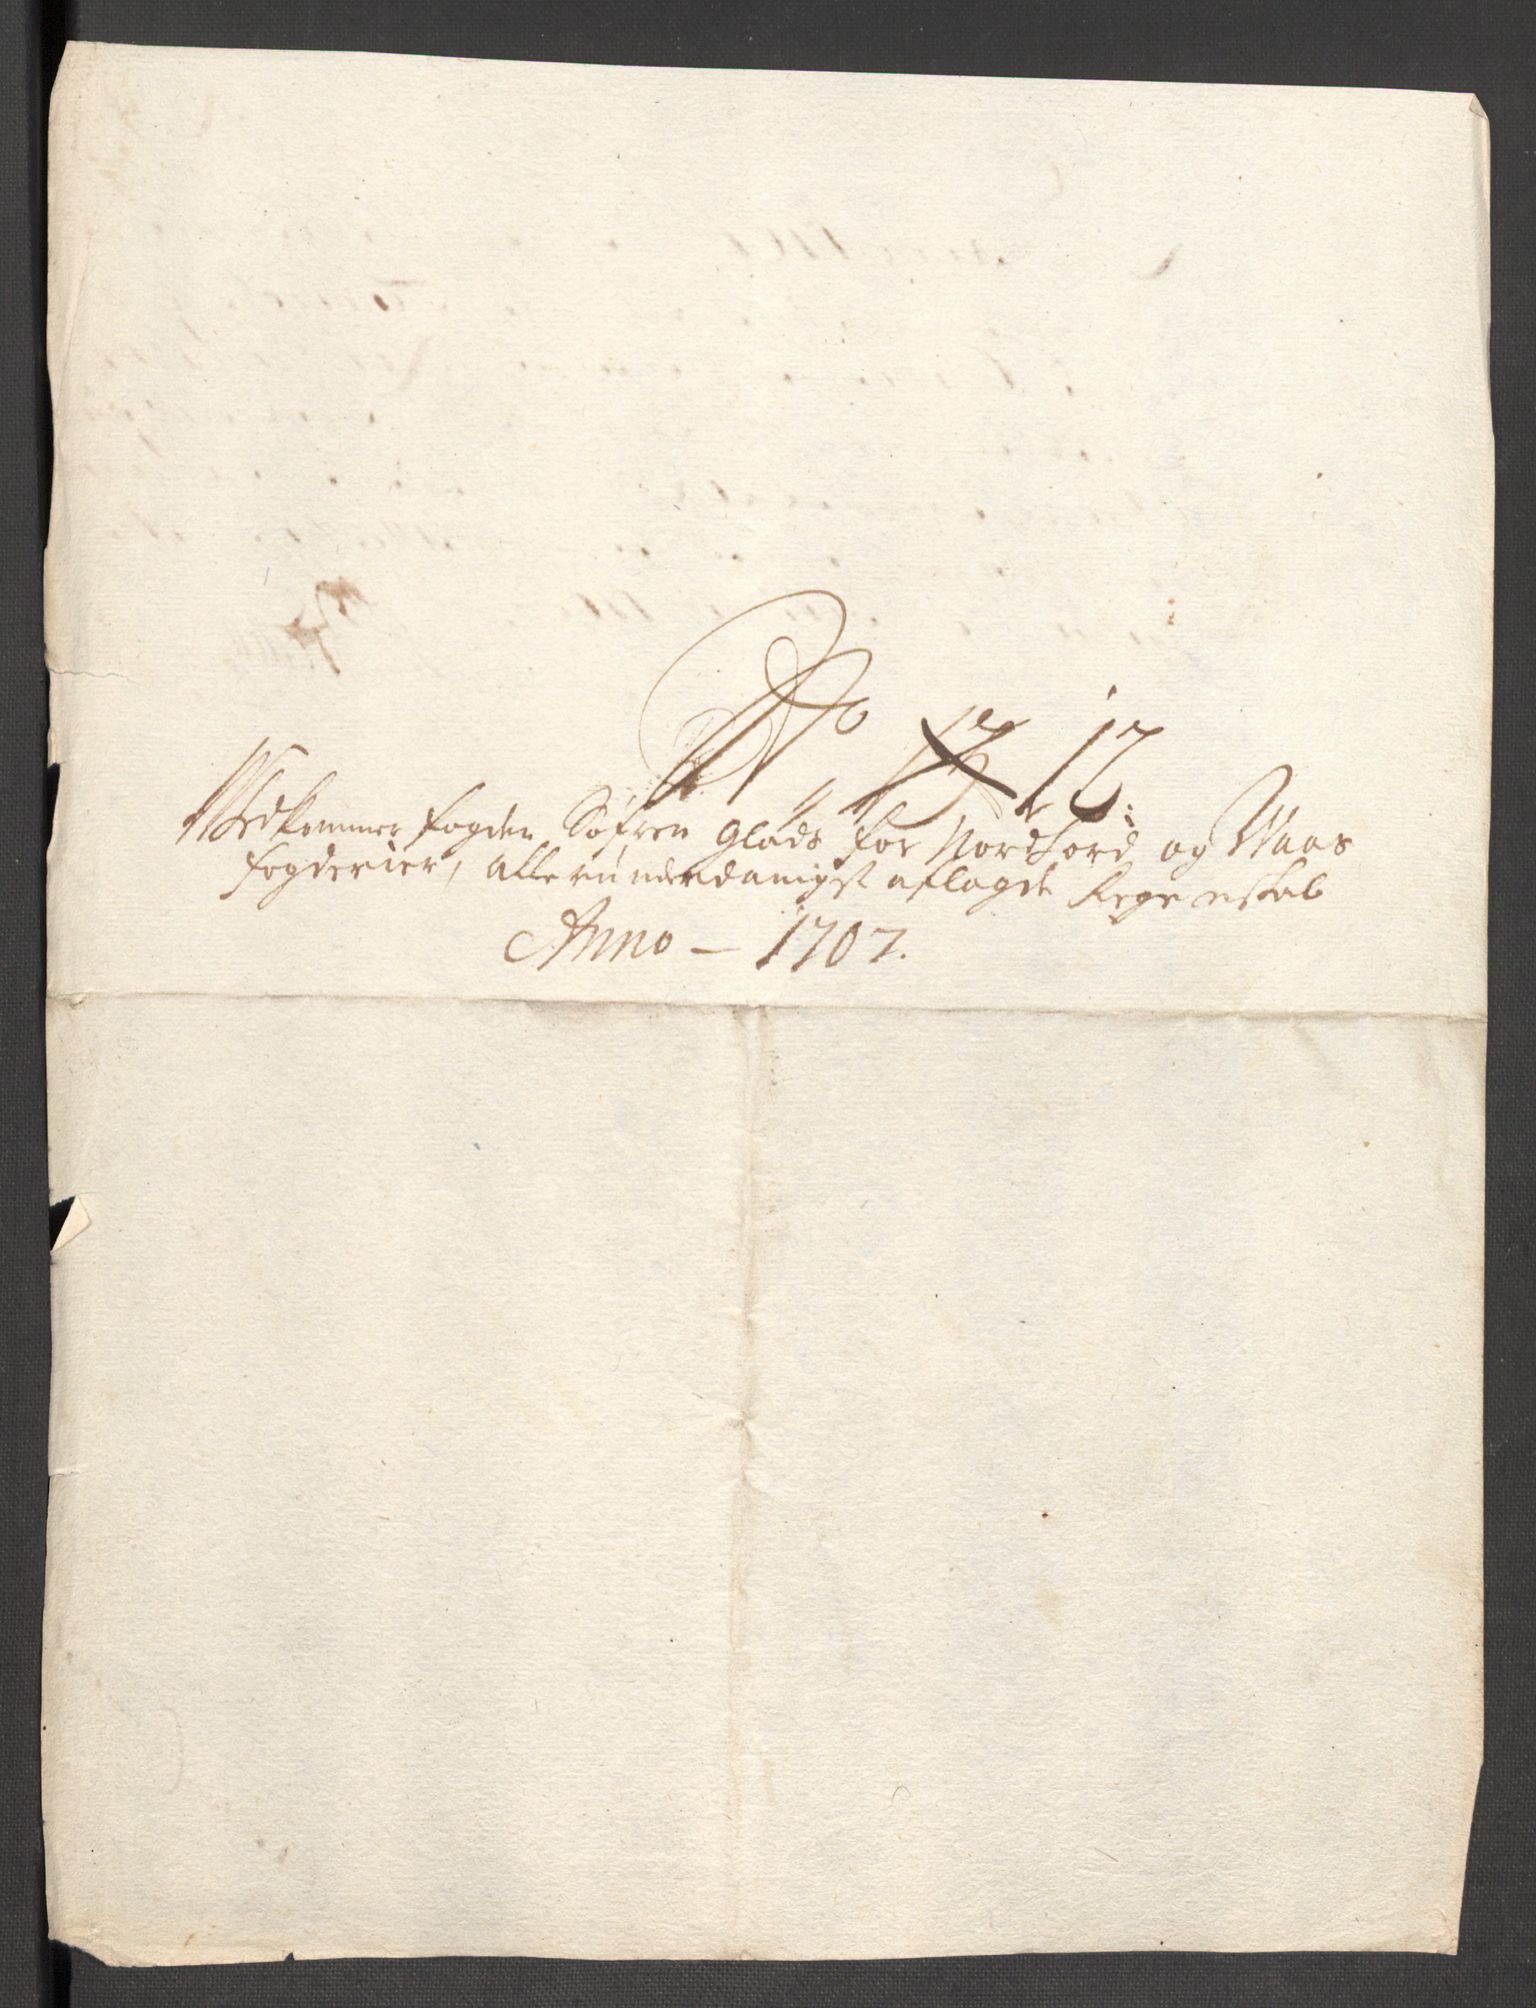 No 17
Vedkommer fogden Søfren Glads for Nordfiord og Waas
fogderier, Allerunderdanigst aflagde Regenskab
Anno – 1707.